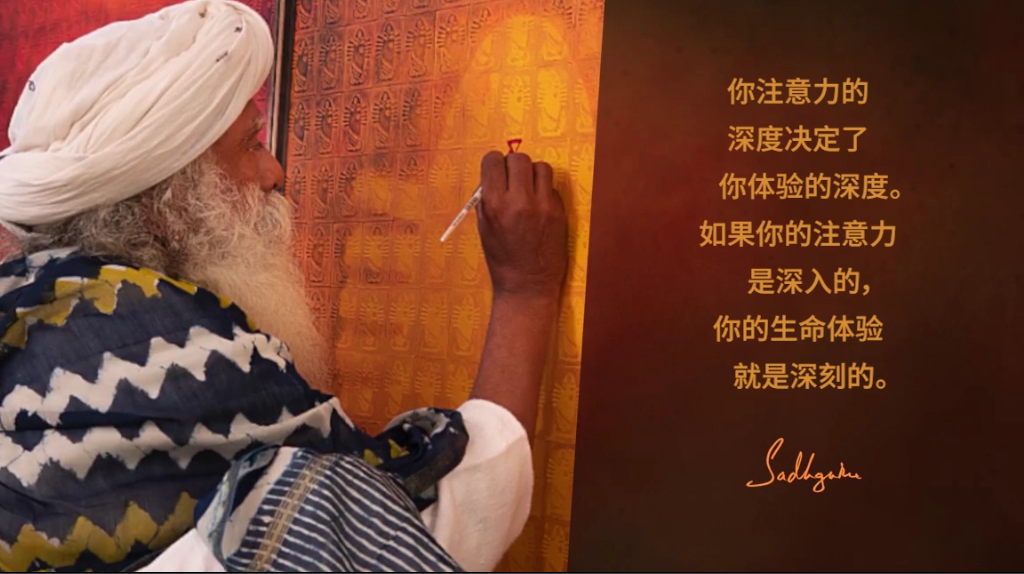 你注意力的
深度决定了
你体验的深度。
如果你的注意力
是深入的，
你的生命体验
就是深刻的。
Sadhguru